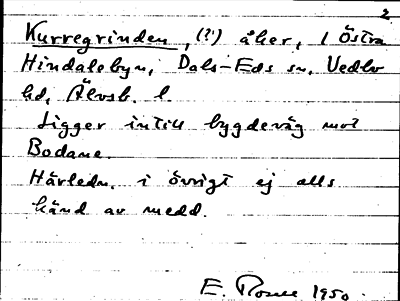 2
Kurregrinden, (?) åker, i Östra
Hindalebyn, Dals-Eds sn, Vedbo
hd, Älvsb. l.
Ligger intill bygdeväg mot
Bodane.
Härledn. i övrigt ej alls
känd av medd.
E. 1950